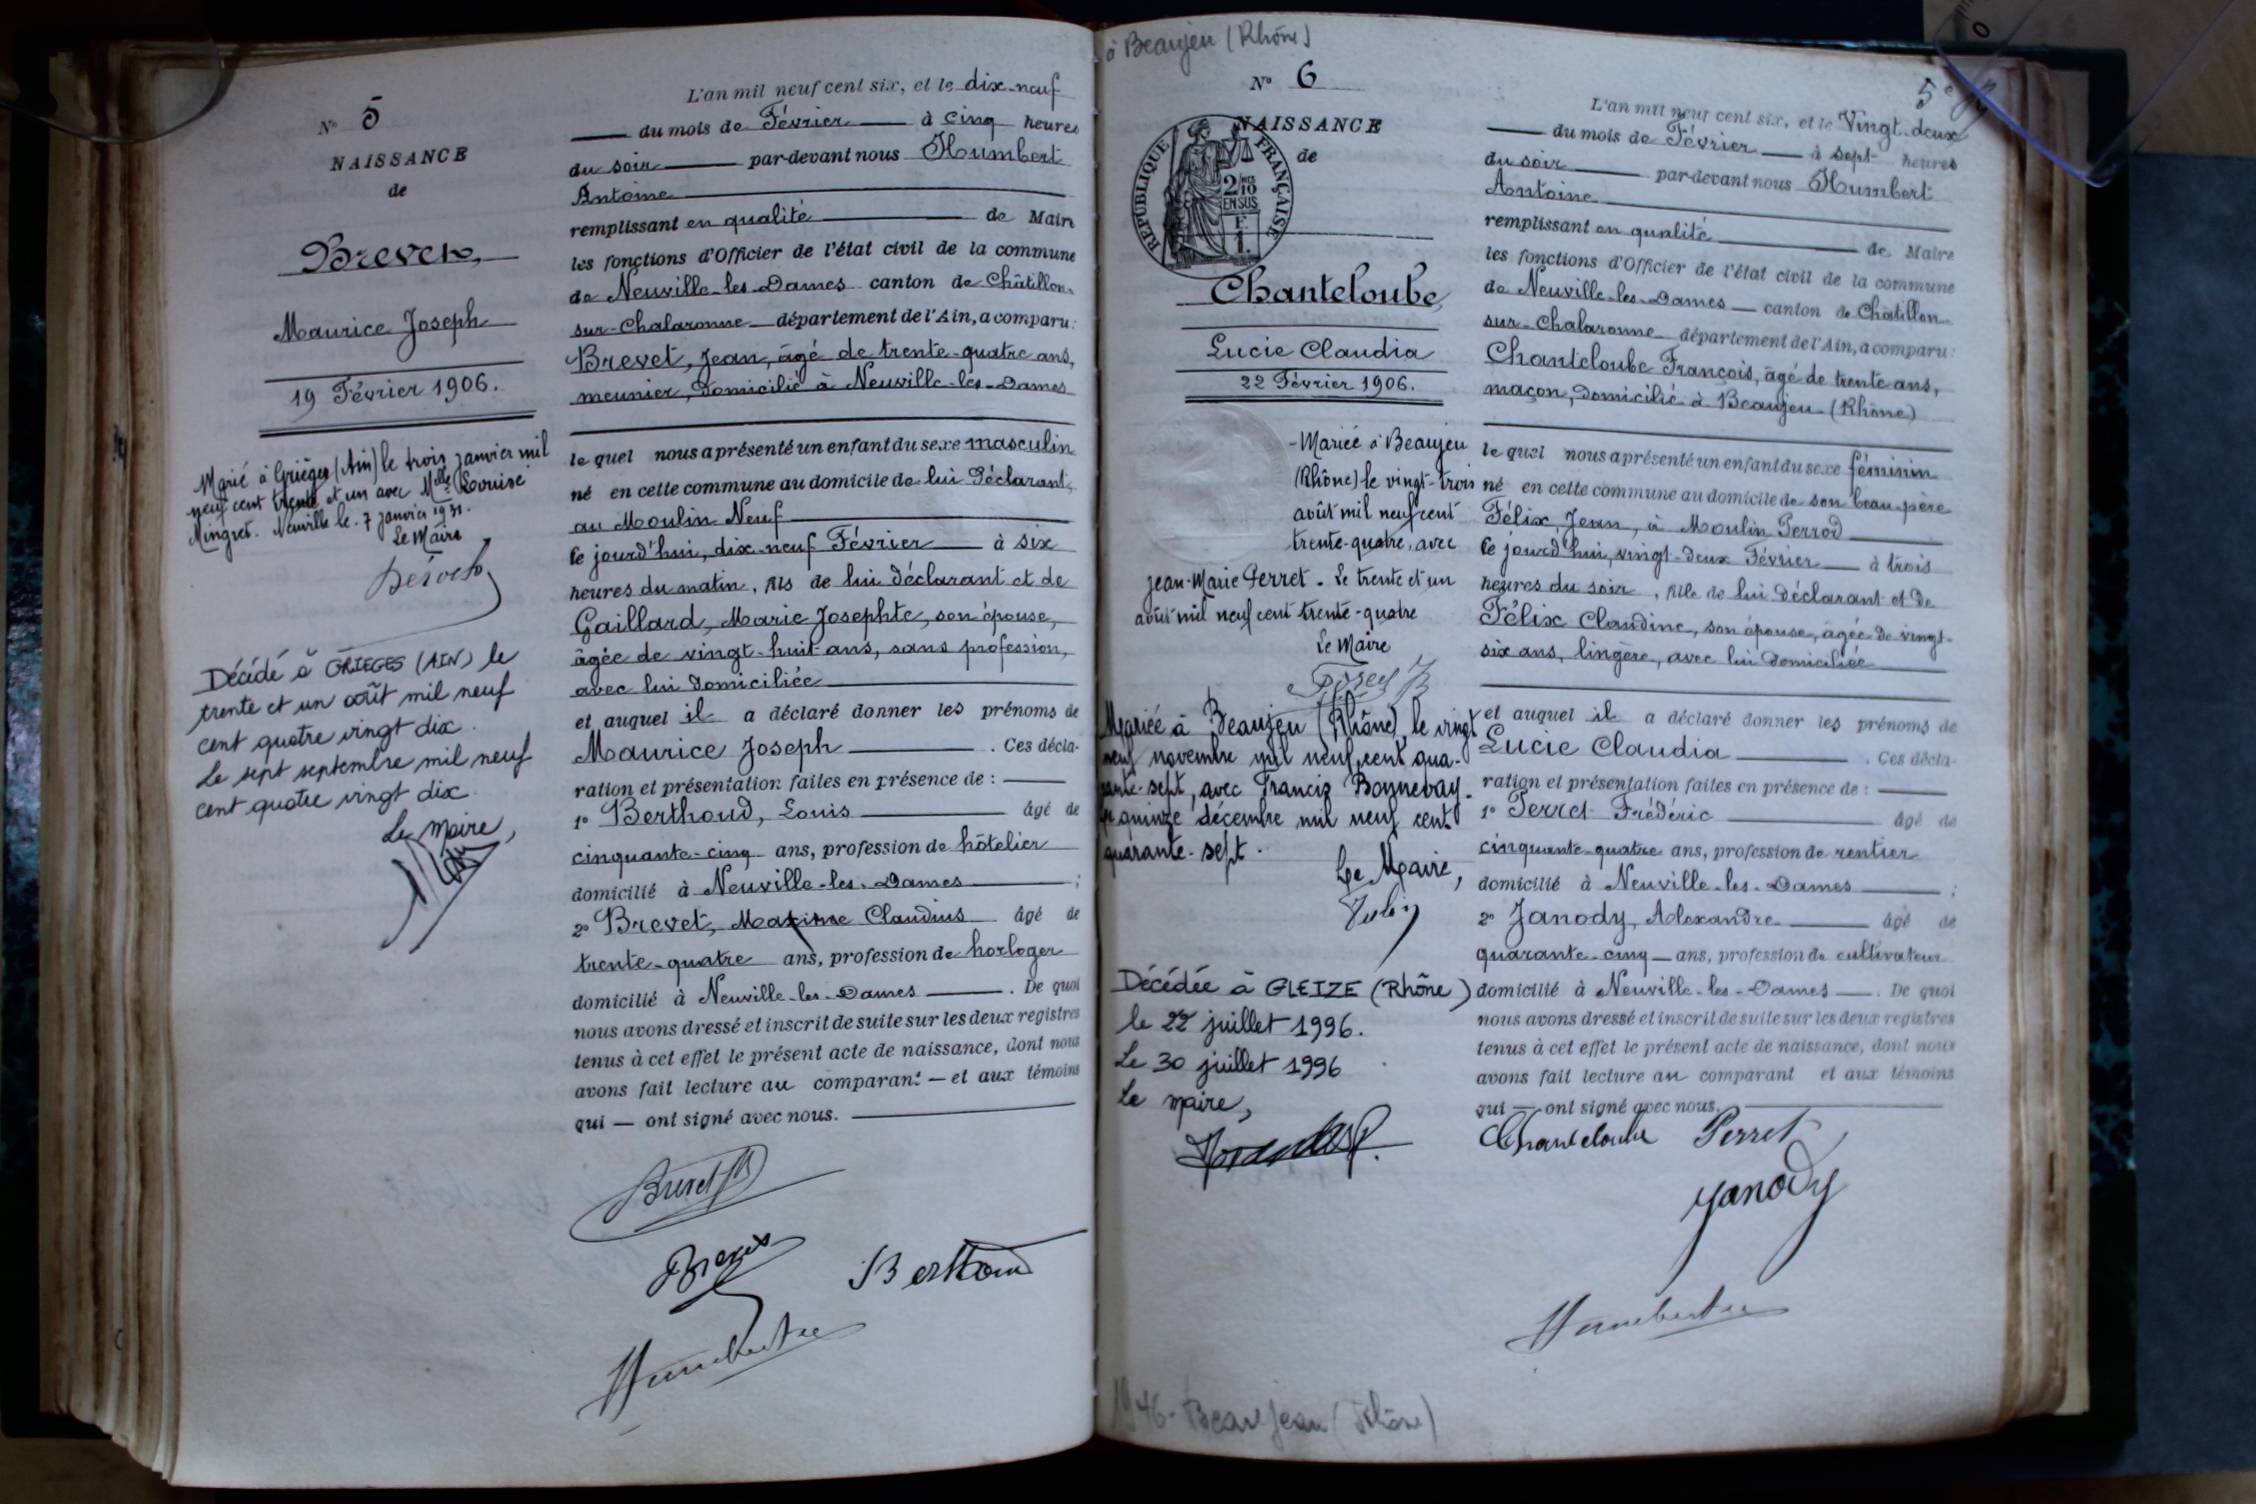 N° 5
NAISSANCE
de
Brevet,
Maurice Joseph
19 Février 1906.
Marié à Grièges (Ain) le trois janvier mil
neuf cent trente et un avec Melle Louise
Mingret. Neuville le 7 janvier 1931.
Le Maire
Décédé à GRIEGES (AIN) le
trente et un août mil neuf
cent quatre vingt dix.
Le sept septembre mil neuf
cent quatre vingt dix
Le maire,
L'an mil neuf cent six, et le dix-neuf
du mois de Février à cinq heures
du soir par-devant nous Humbert
Antoine
remplissant en qualité de Maire
les fonctions d'Officier de l'état civil de la commune
de Neuville-les-Dames canton de Châtillon-
sur-Chalaronne département de l'Ain, a comparu:
Brevet, Jean, âgé de trente-quatre ans,
meunier, domicilié à Neuville-les-Dames
le quel nous a présenté un enfant du sexe masculin
né en cette commune au domicile de lui déclarant,
au Moulin Neuf
ce jourd'hui, dix-neuf Février à six
heures du matin, fils de lui déclarant et de
Gaillard, Marie Josephte, son épouse,
âgée de vingt-huit ans, sans profession,
avec lui domiciliée
et auquel il a déclaré donner les prénoms de
Maurice Joseph . Ces décla-
ration et présentation faites en présence de :
1° Berthoud, Louis âgé de
cinquante-cinq ans, profession de hôtelier
domicilié à Neuville-les-Dames ;
2° Brevet, Maxime Claudius âgé de
trente-quatre ans, profession de horloger
domicilié à Neuville-les-Dames . De quoi
nous avons dressé et inscrit de suite sur les deux registres
tenus à cet effet le présent acte de naissance, dont nous
avons fait lecture au comparant — et aux témoins
qui — ont signé avec nous.
Brevet
Brevet
Berthoud
Humbert
à Beaujeu (Rhône)
N° 6
NAISSANCE
de
REPUBLIQUE FRANÇAISE
2/10
EN SUS
F
1.
Chanteloube,
Lucie Claudia
22 Février 1906.
- Mariée à Beaujeu
(Rhône) le vingt-trois
août mil neuf cent
trente-quatre, avec
Jean-Marie Perret - Le trente et un
août mil neuf cent trente-quatre
Le Maire
Mariée à Beaujeu (Rhône), le vingt
neuf novembre mil neuf cent qua-
rante-sept, avec Francis Bonnevay.
Le quinze décembre mil neuf cent
quarante-sept.
Le Maire,
Décédée à GLEIZE (Rhône)
le 22 juillet 1996.
Le 30 juillet 1996
Le maire,
1946-Beaujeau (Rhône)
5e
L'an mil neuf cent six, et le Vingt-deux
du mois de Février à sept heures
du soir par-devant nous Humbert
Antoine
remplissant en qualité de Maire
les fonctions d'Officier de l'état civil de la commune
de Neuville-les-Dames canton de Châtillon-
sur-Chalaronne département de l'Ain, a comparu:
Chanteloube François, âgé de trente ans,
maçon, domicilié à Beaujeu (Rhône)
le quel nous a présenté un enfant du sexe féminin
né en cette commune au domicile de son beau-père
Félix, Jean, à Moulin Perrod
ce jourd'hui, vingt-deux Février à trois
heures du soir, fille de lui déclarant et de
Félix Claudine, son épouse, âgée de vingt-
six ans, lingère, avec lui domiciliée
et auquel il a déclaré donner les prénoms de
Lucie Claudia . Ces décla-
ration et présentation faites en présence de :
1° Perret Frédéric âgé de
cinquante-quatre ans, profession de rentier
domicilié à Neuville-les-Dames ;
2° Janody, Alexandre âgé de
quarante-cinq ans, profession de cultivateur
domicilié à Neuville-les-Dames . De quoi
nous avons dressé et inscrit de suite sur les deux registres
tenus à cet effet le présent acte de naissance, dont nous
avons fait lecture au comparant et aux témoins
qui — ont signé avec nous.
Chanteloube Perret
Janody
Humbert